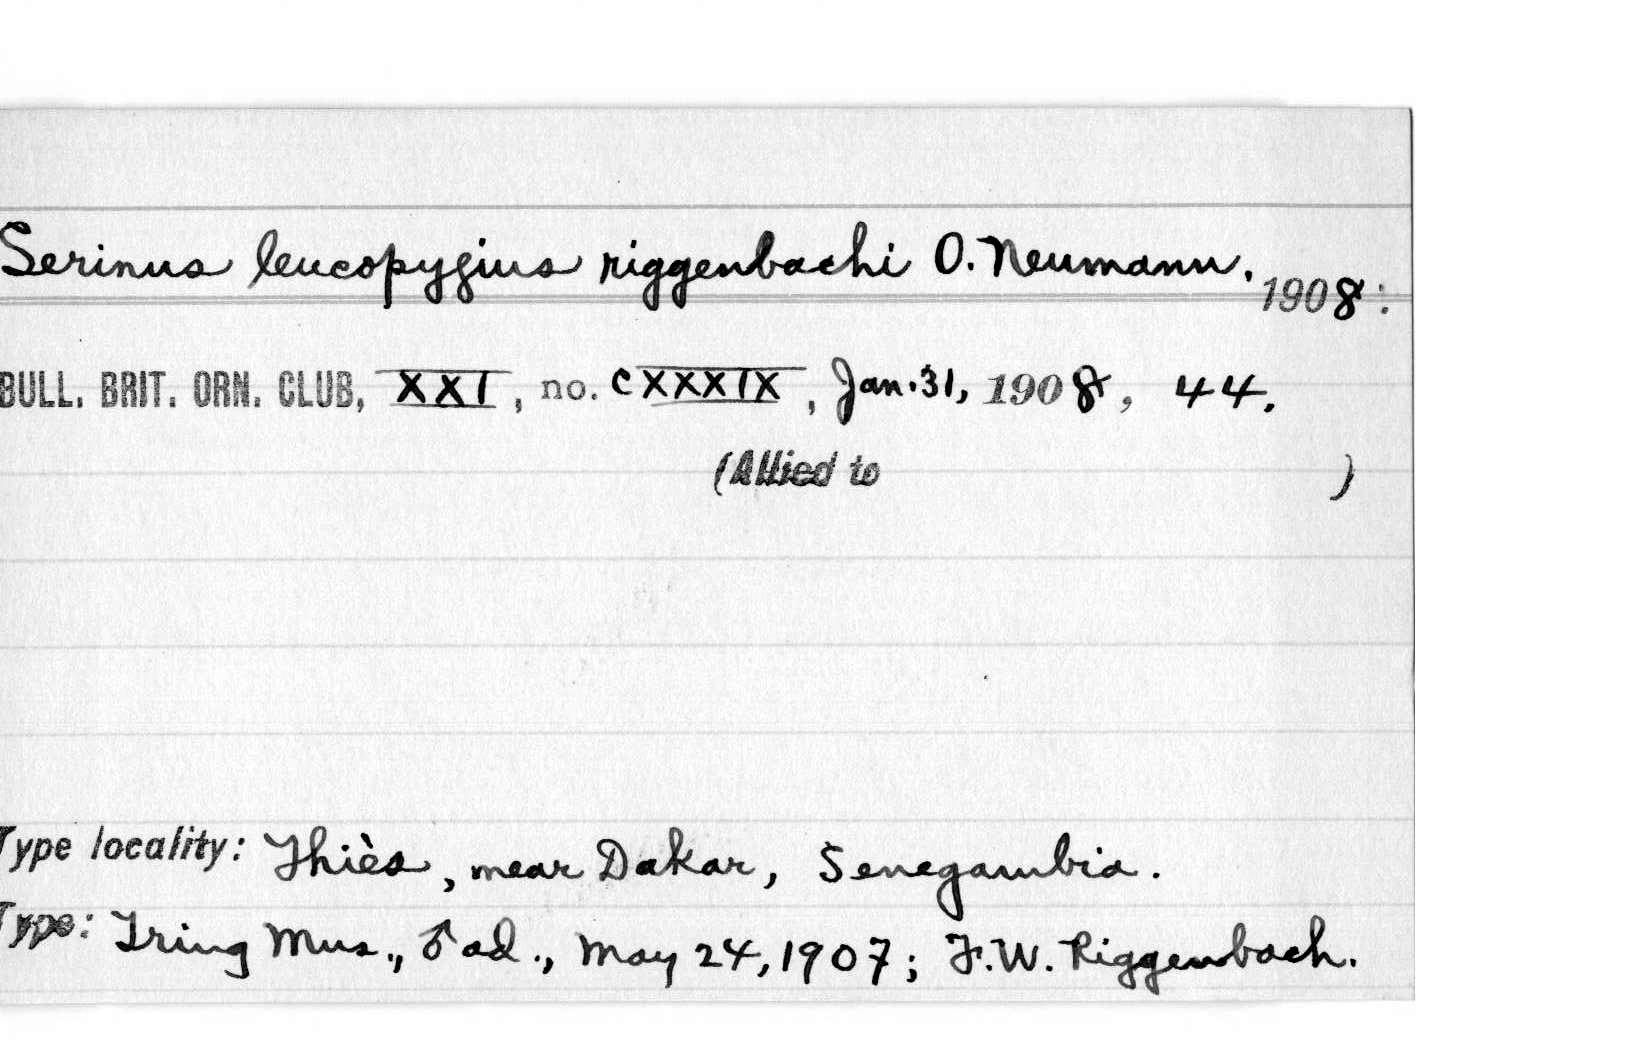 Serinus leucopygius riggenbachi O. Neumann. 1908:
BULL. BRIT. ORN. CLUB, XXI, no. CXXXIX, Jan. 31, 1908, 44.
(Allied to )
Type locality: Thiès, near Dakar, Senegambia.
Type: Tring Mus., ♂ ad., May 24, 1907; F.W. Riggenbach.